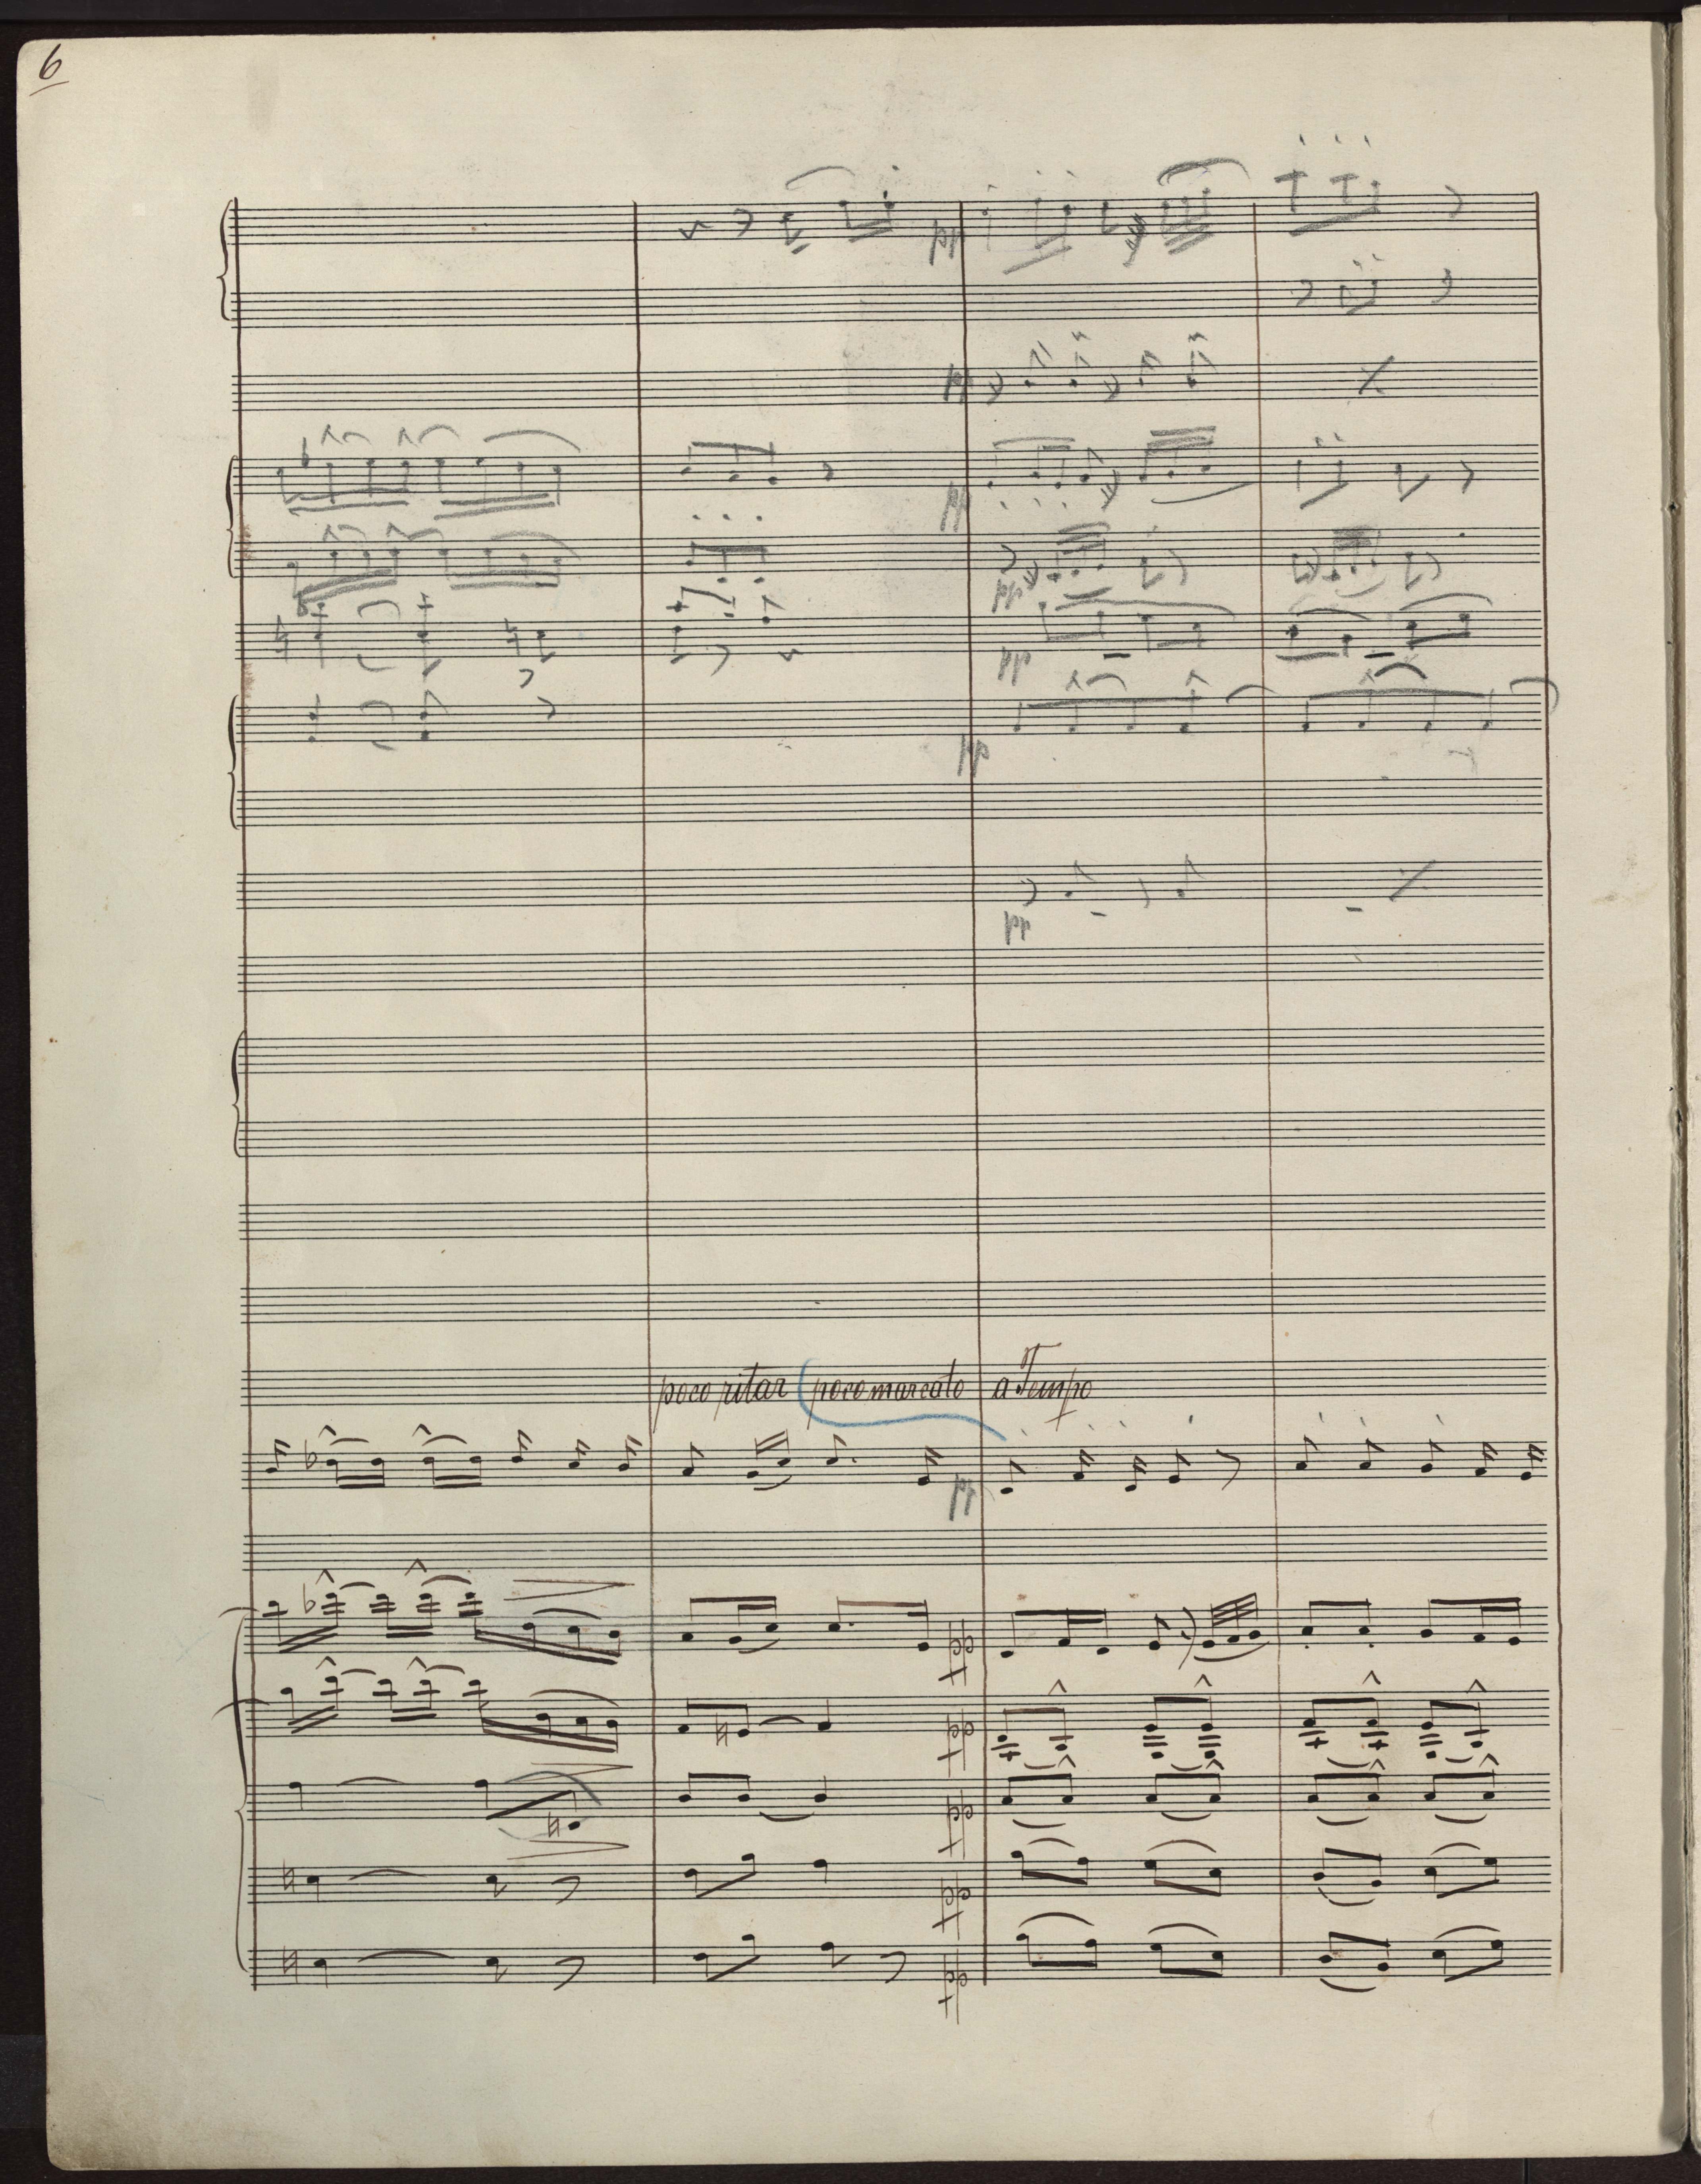 6
pp
pp
pp
pp
pp
pp
pp
poco ritar (poco marcato a Tempo
pp
pp
pp
pp
pp
pp